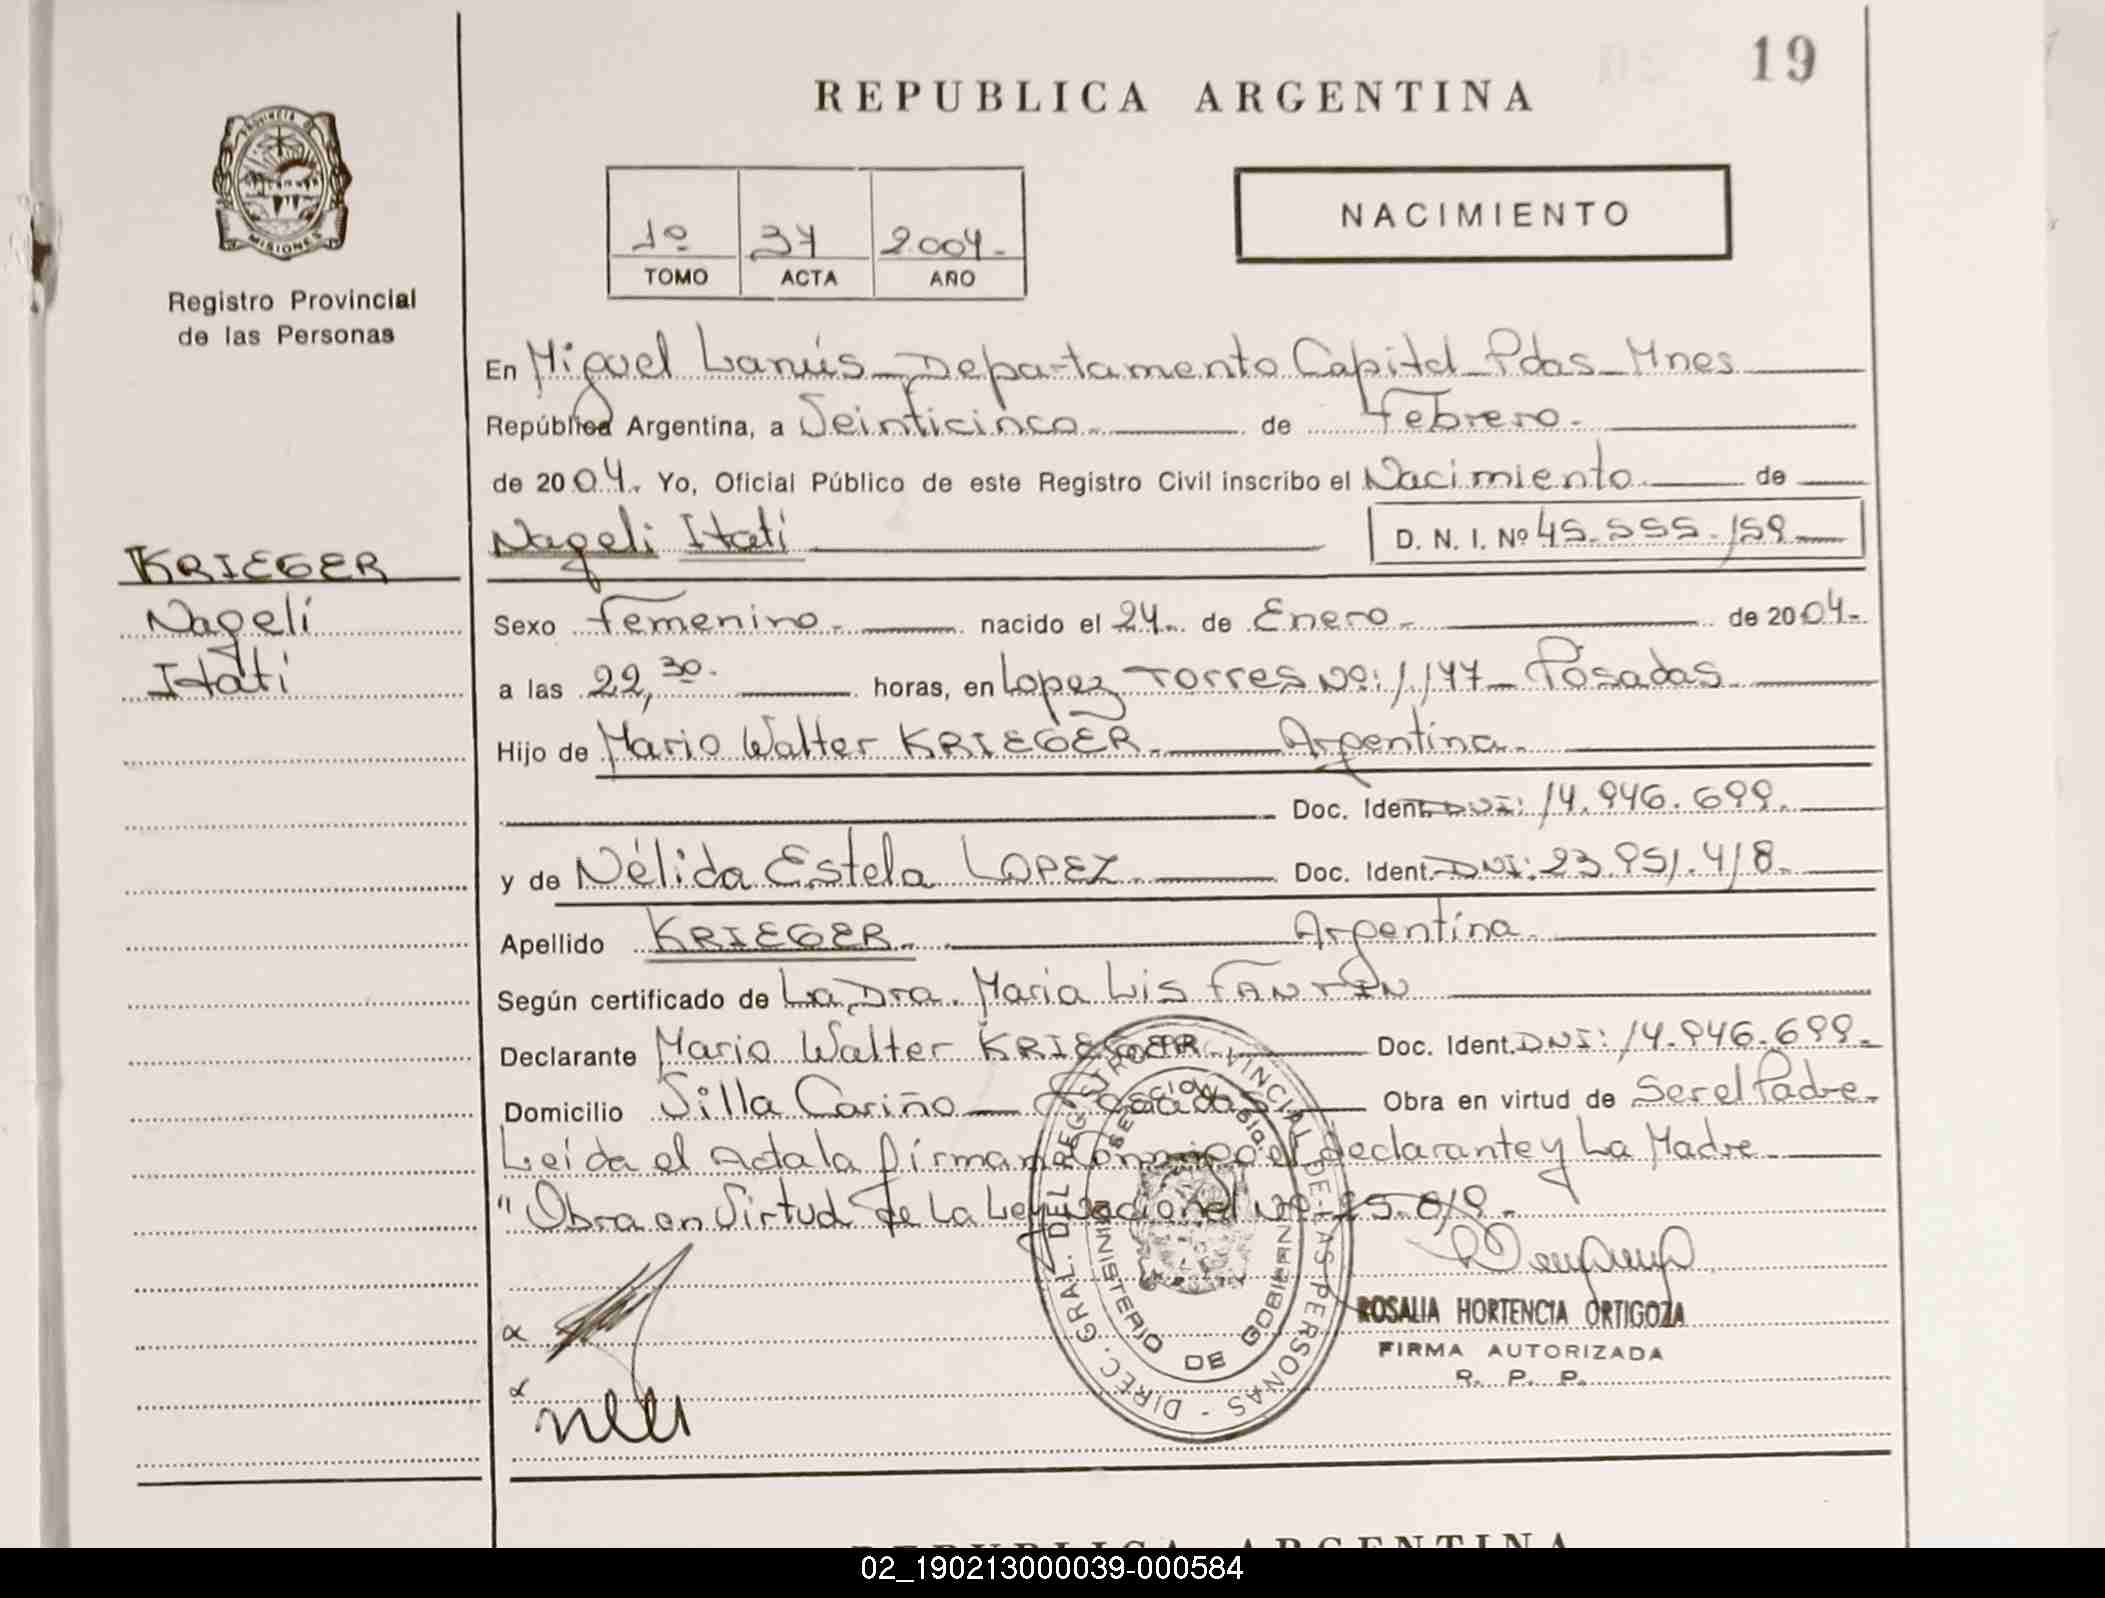 19
REPUBLICA ARGENTINA
PROVINCIA DE
MISIONES
Registro Provincial
de las Personas
1º 37 2004-
TOMO ACTA AÑO
NACIMIENTO
En Miguel Lanús - Departamento Capital - Pdas - Mnes
República Argentina, a Veinticinco - de Febrero -
de 2004. Yo, Oficial Público de este Registro Civil inscribo el Nacimiento de
Nageli Itati D. N. I. Nº 45.555.159
KRIEGER
Nageli
Itati
Sexo Femenino - nacido el 24 de Enero - de 2004-
a las 22,30 - horas, en Lopez Torres Nº: 1.177 - Posadas
Hijo de Mario Walter KRIEGER - Argentina -
Doc. Ident. DNI: 14.946.699 -
y de Nélida Estela LOPEZ - Doc. Ident. DNI: 23.951.418 -
Apellido KRIEGER - Argentina -
Según certificado de La Dra. Maria Lis FANTIN
Declarante Mario Walter KRIEGER - Doc. Ident. DNI: 14.946.699 -
Domicilio Villa Cariño - Posadas - Obra en virtud de Ser el Padre -
Leida el Acta la firman Conmigo el declarante y La Madre
" Obra en Virtud de La Ley Nacional Nº 25.819 -
DIREC. GRAL. DEL REGISTRO PROVINCIAL DE LAS PERSONAS -
MINISTERIO DE GOBIERNO
ROSALIA HORTENCIA ORTIGOZA
FIRMA AUTORIZADA
R. P. P.
REPUBLICA ARGENTINA
02_190213000039-000584